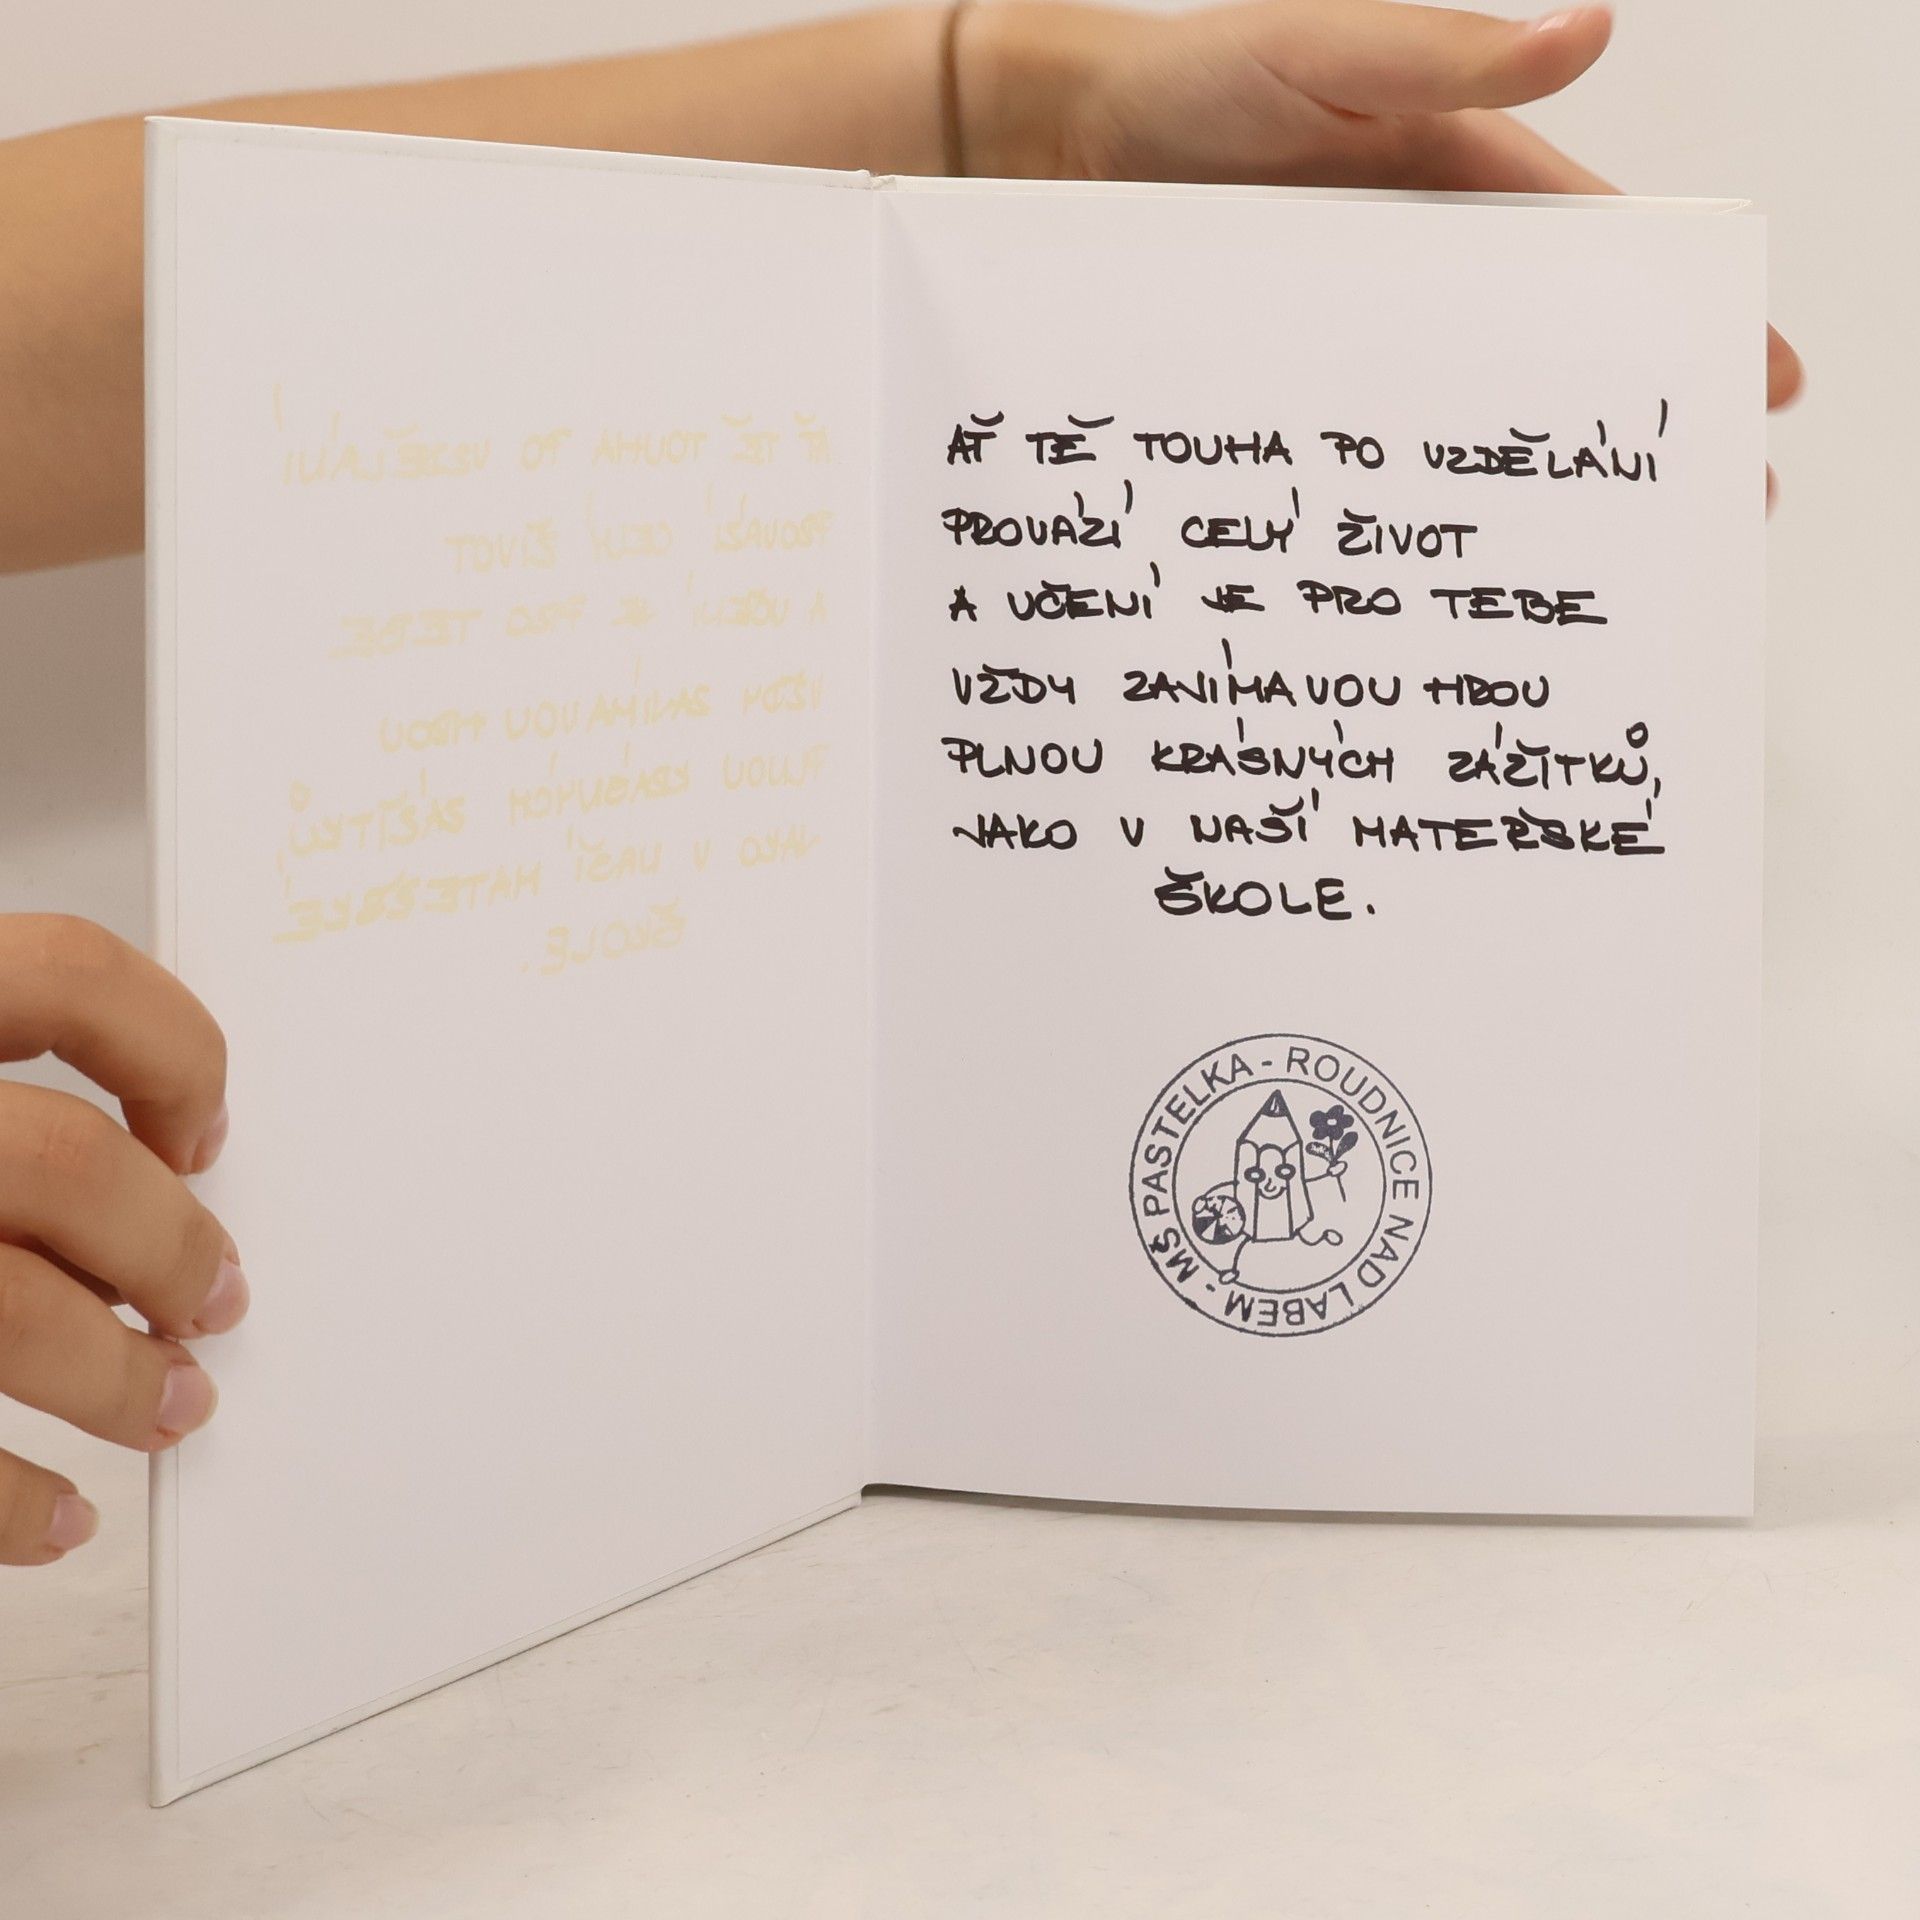 AŤ TĚ TOUHA PO VZDĚLÁNÍ
PROVÁZÍ CELÝ ŽIVOT
A UČENÍ JE PRO TEBE
VŽDY ZANÍMAVOU HROU
PLNOU KRÁSNÝCH ZÁŽITKŮ,
JAKO V NAŠÍ MATEŘSKÉ
ŠKOLE.
MŠ PASTELKA - ROUDNICE NAD LABEM -